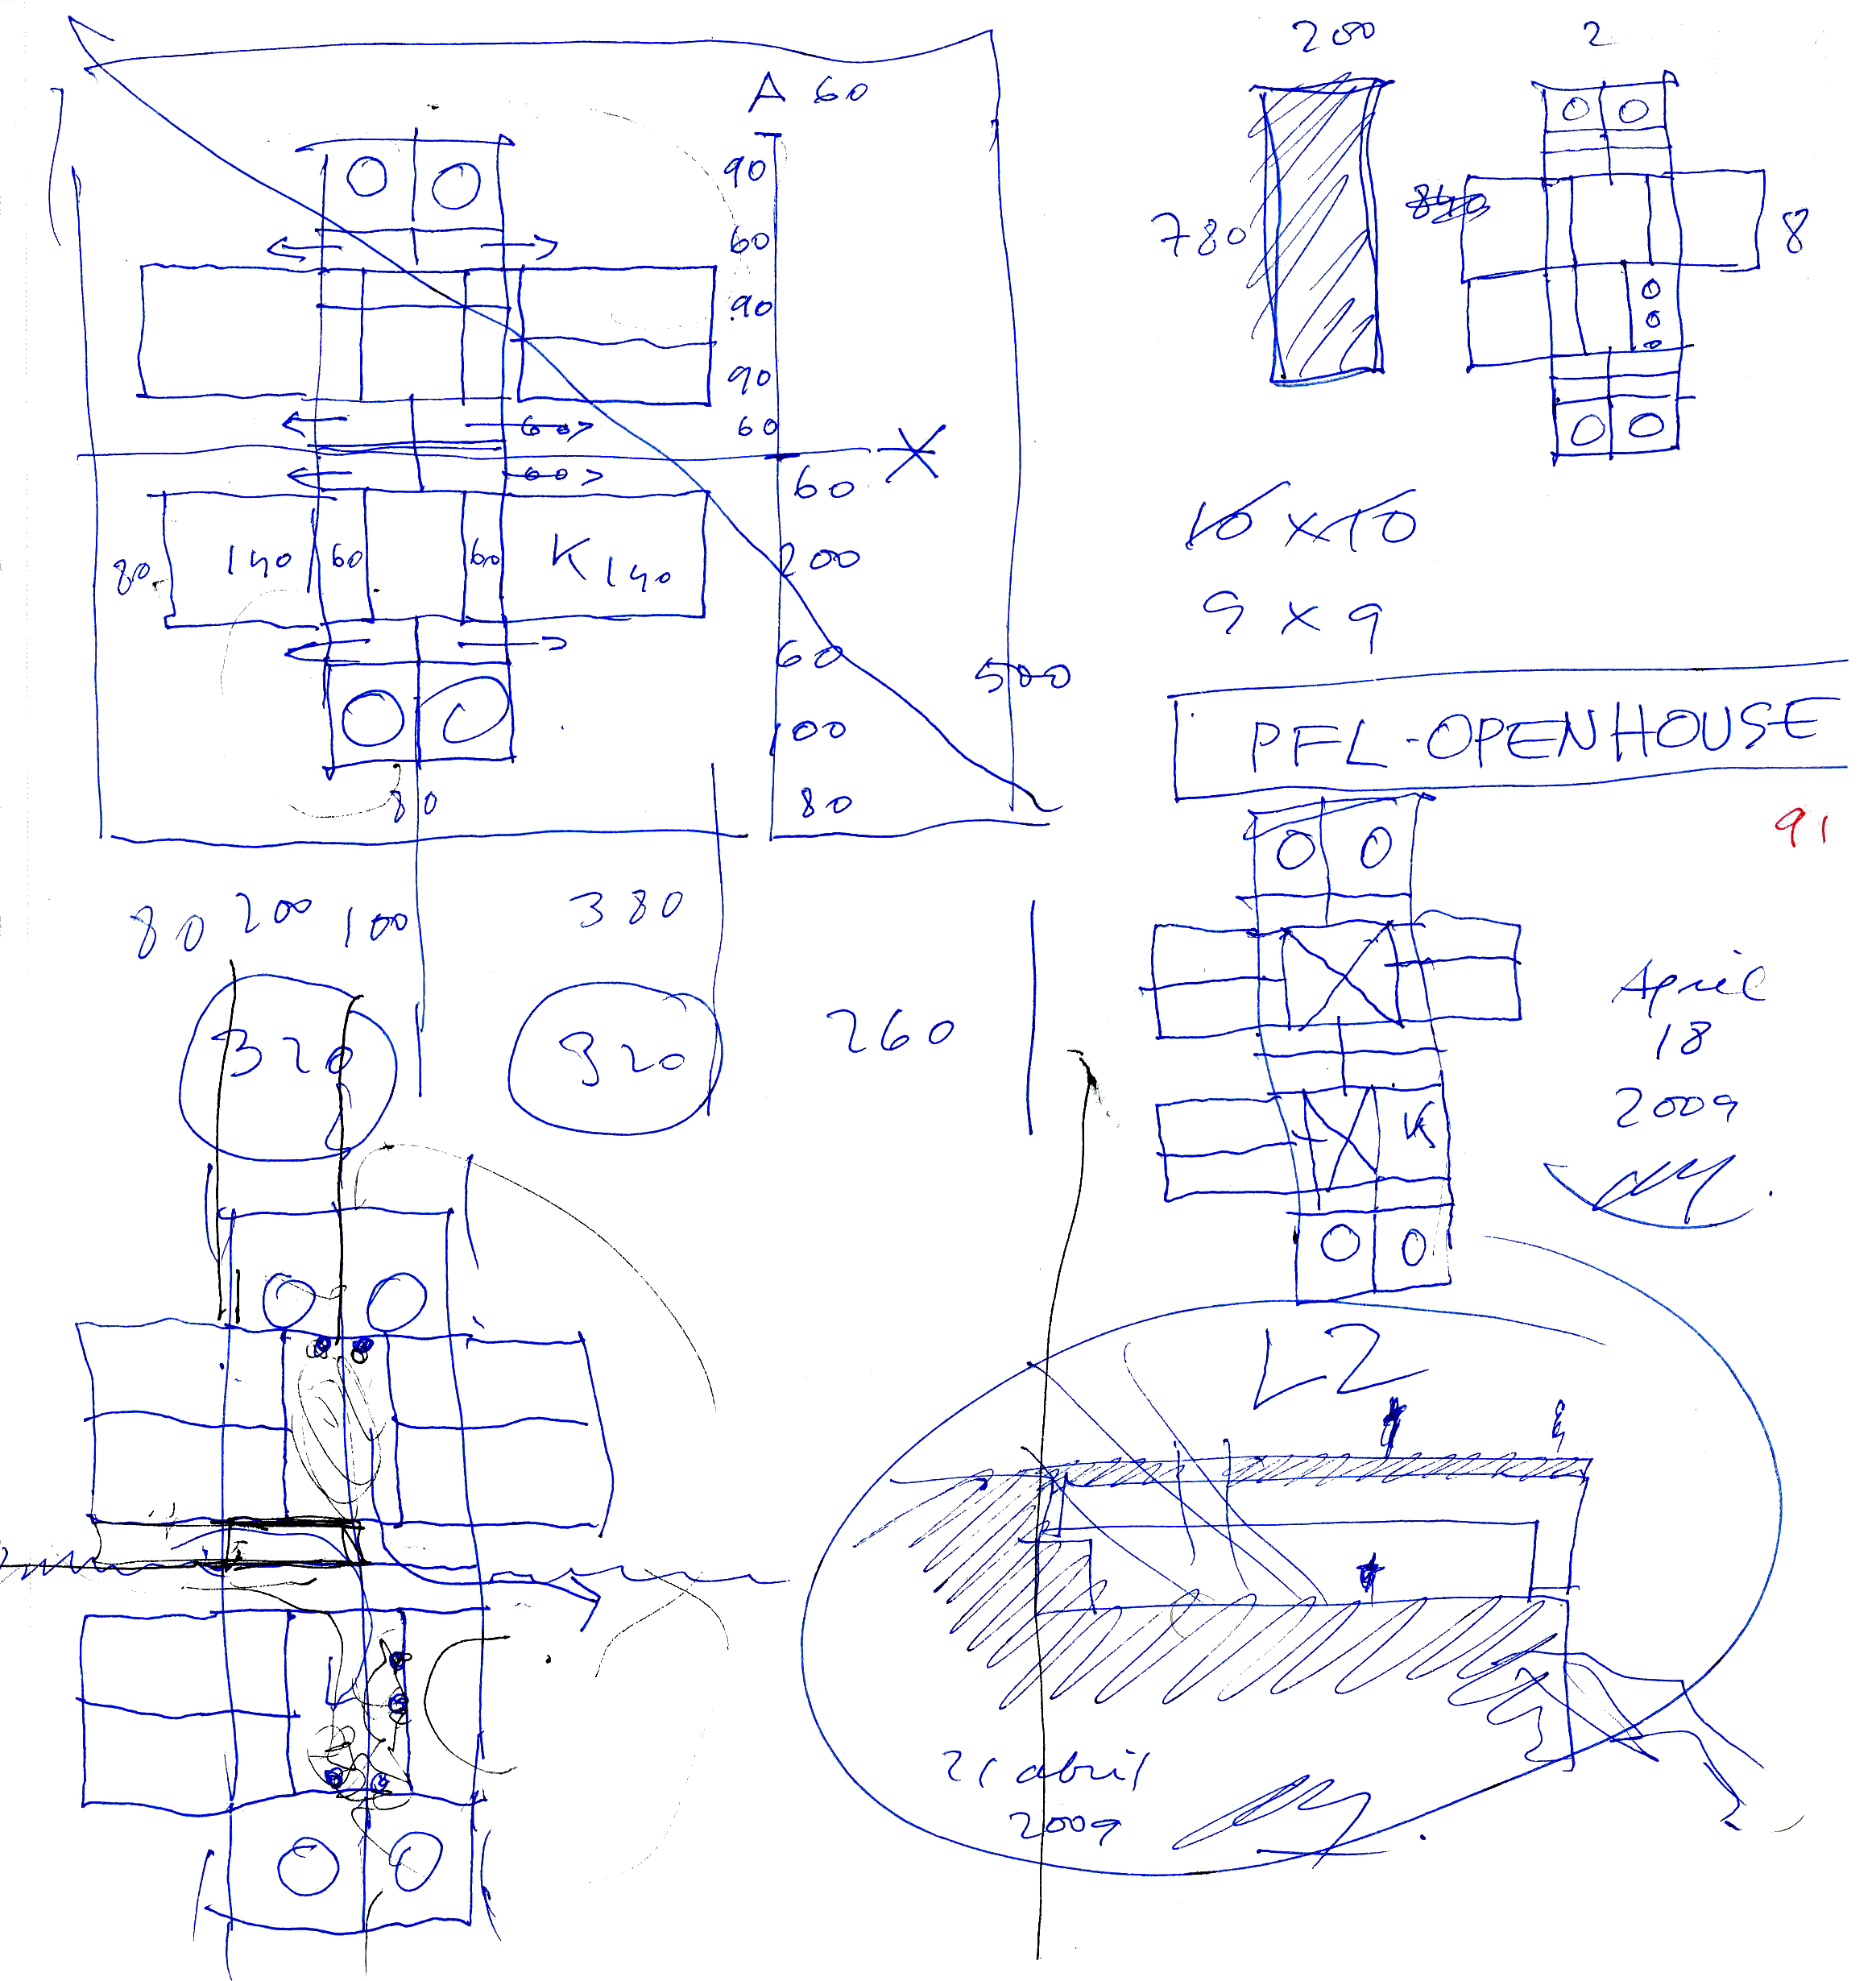 A 60
90
60
90
90
60
60
60
60
200
80
140
60
60
K 140
60
500
100
80
80
80 200 100
380
320
320
260
200
2
780
840
8
10 x 10
9 x 9
PFL-OPENHOUSE
91
K
April
18
2009
L2
21 abril
2009